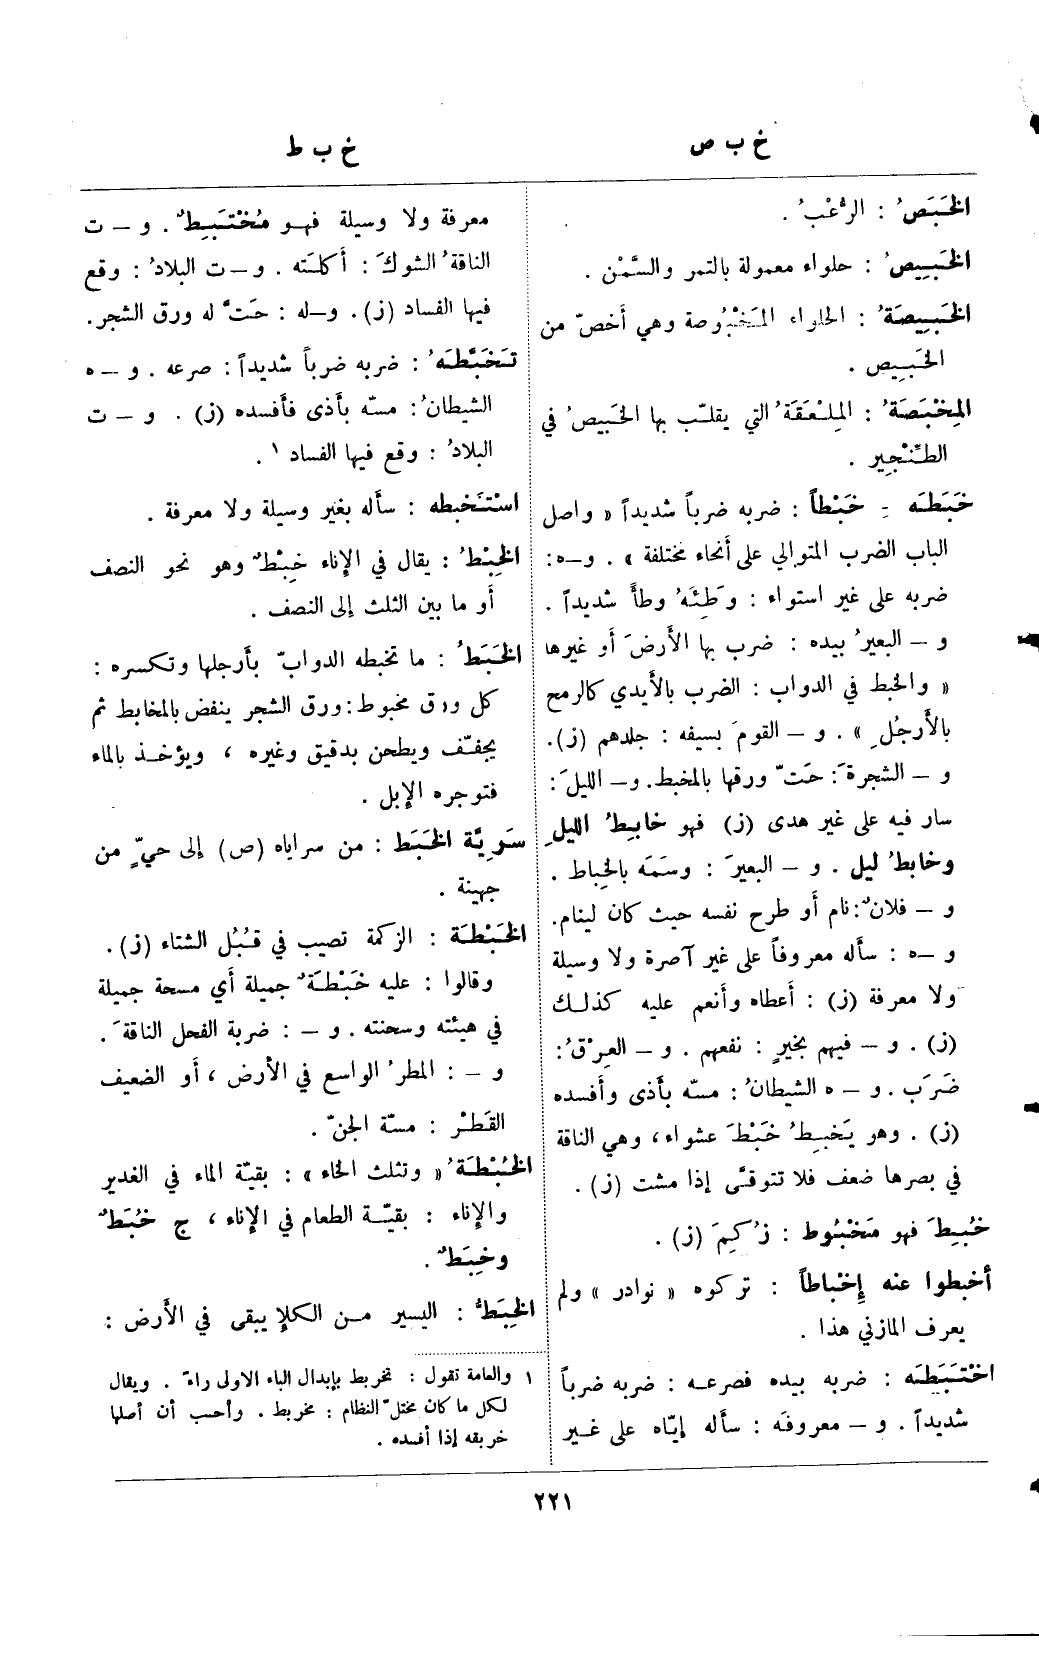 خ ب ص
خ ب ط
الخَبَصُ : الرُّعْبُ .
الخَبِيصُ : حلواء معمولة بالتمر والسَّمْن .
الخَبِيصَةُ : الحلواء المَخْبُوصة وهي أخصّ من
الخَبِيص .
المِخْبَصَةُ : المِلْعَقَةُ التي يقلّب بها الخَبيصُ في
الطِّنْجِير .
خَبَطَه ِ خَبْطاً : ضربه ضرباً شديداً « واصل
الباب الضرب المتوالي على أنحاء مختلفة » . و–ه :
ضربه على غير استواء : وَطِئَهُ وطأً شديداً .
و – البعيرُ بيده : ضرب بها الأرضَ أو غيرها
« والخبط في الدواب : الضرب بالأيدي كالرمح
بالأَرجُلِ » . و – القومَ بسيفه : جلدهم (ز).
و – الشجرةَ : حَتّ ورقها بالمخبط. و – الليلَ :
سار فيه على غير هدى (ز) فهو خابِطُ الليلِ
وخابطُ ليل . و – البعيرَ : وسَمَه بالخِباط .
و – فلانٌ : نام أو طرح نفسه حيث كان لينام.
و –ه : سأله معروفاً على غير آصرة ولا وسيلة
ولا معرفة (ز) : أعطاه وأنعم عليه كذلك
(ز) . و – فيهم بخيرٍ : نفعهم . و – العِرْقُ :
ضَرَب . و – ه الشيطانُ : مسّه بأذى وأفسده
(ز) . وهو يَخبِطُ خَبْطَ عشواء ، وهي الناقة
في بصرها ضعف فلا تتوقّى إذا مشت (ز) .
خُبِطَ فهو مَخْبُوط : زُكِمَ (ز) .
أخبطوا عنه إِخْباطاً : تركوه « نوادر » ولم
يعرف المازني هذا .
اخْتَبَطَه : ضربه بيده فصرعه : ضربه ضرباً
شديداً . و – معروفَه : سأله إيّاه على غير
معرفة ولا وسيلة فهو مُخْتَبِطٌ . و – ت
الناقةُ الشوكَ : أكلَته . و – ت البلادُ : وقع
فيها الفساد (ز) . و–له : حَتَّ له ورق الشجر.
تَخَبَّطَهُ : ضربه ضرباً شديداً : صرعه . و – ه
الشيطانُ : مسّه بأذى فأفسده (ز) . و – ت
البلادُ : وقع فيها الفساد ١ .
اسْتَخبطه : سأله بغير وسيلة ولا معرفة .
الخِبْطُ : يقال في الإناء خِبْطٌ وهو نحو النصف
أو ما بين الثلث إلى النصف .
الخَبَطُ : ما تخبطه الدوابّ بأرجلها وتكسره :
كل ورق مخبوط : ورق الشجر ينفض بالمخابط ثم
يجفّف ويطحن بدقيق وغيره ، ويؤخذ بالماء
فتوجره الإبل .
سَرِيَّة الخَبَط : من سراياه (ص) إلى حيّ من
جهينة .
الخَبْطَة : الزكمة تصيب في قُبُل الشتاء (ز) .
وقالوا : عليه خَبْطَةٌ جميلة أي مسحة جميلة
في هيئته وسحنته . و – : ضربة الفحل الناقةَ .
و – : المطرُ الواسع في الأرض ، أو الضعيف
القَطْر : مسّة الجنّ .
الخُبْطَةُ « وتثلث الخاء » : بقيّة الماء في الغدير
والإناء : بقيّة الطعام في الإناء ، ج خُبَطٌ
وخِبَطٌ .
الخِبَطُ : اليسير من الكلإ يبقى في الأرض :
١ والعامة تقول : تخربط بإبدال الباء الاولى راءً . ويقال
لكل ما كان مختلّ النظام : مخربط . وأحسب أن أصلها
خربقه إذا أفسده .
٢٢١